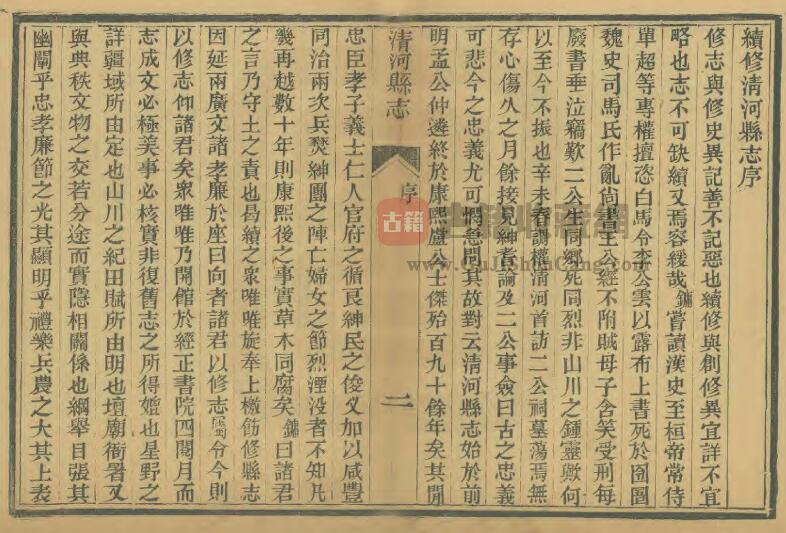 續修清河縣志序
修志與修史異記善不記惡也續修與創修異宜詳不宜
略也志不可缺續又焉容緩哉鏞嘗讀漢史至桓帝常侍
單超等專權擅恣白馬令李公雲以露布上書死於囹圄
魏史司馬氏作亂尚書王公經不附賊母子含笑受刑每
廢書垂泣竊歎二公生同鄉死同烈非山川之鍾靈歟何
以至今不振也辛未春調權清河首訪二公祠墓蕩焉無
存心傷久之月餘接見紳耆論及二公事僉曰古之忠義
可悲今之忠義尤可憫急問其故對云清河縣志始於前
明孟公仲遴終於康熙盧公士傑殆百九十餘年矣其間
清河縣志 序 二
忠臣孝子義士仁人官府之循良紳民之俊乂加以咸豐
同治兩次兵燹紳團之陣亡婦女之節烈湮没者不知凡
幾再越數十年則康熙後之事實草木同腐矣鏞曰諸君
之言乃守土之責也曷續之眾唯唯旋奉上檄飭修縣志
因延兩廣文諸孝廉於座曰向者諸君以修志囑今今則
以修志仰諸君矣眾唯唯乃開館於經正書院四閱月而
志成文必極美事必核實非復舊志之所得媲也星野之
詳疆域所由定也山川之紀田賦所由明也壇廟衙署又
與典秩文物之交若分途而實隱相關係也綱舉目張其
幽闡乎忠孝廉節之光其顯明乎禮樂兵農之大其上表
古籍
www.GuJiShuCang.com